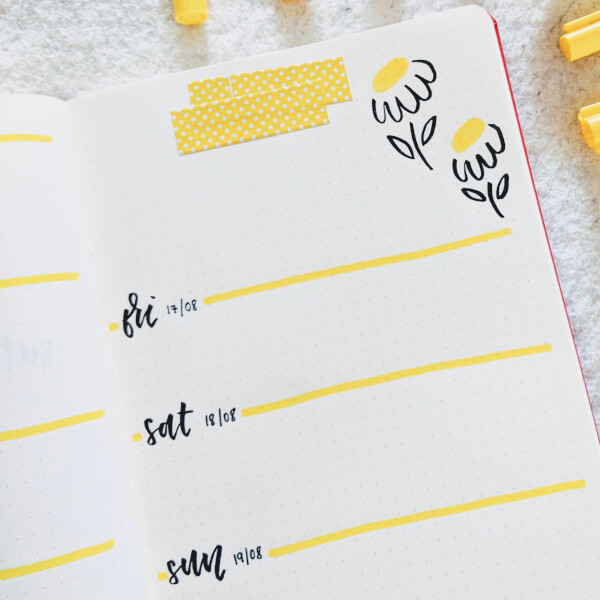 fri 17/08
sat 18/08
sun 19/08